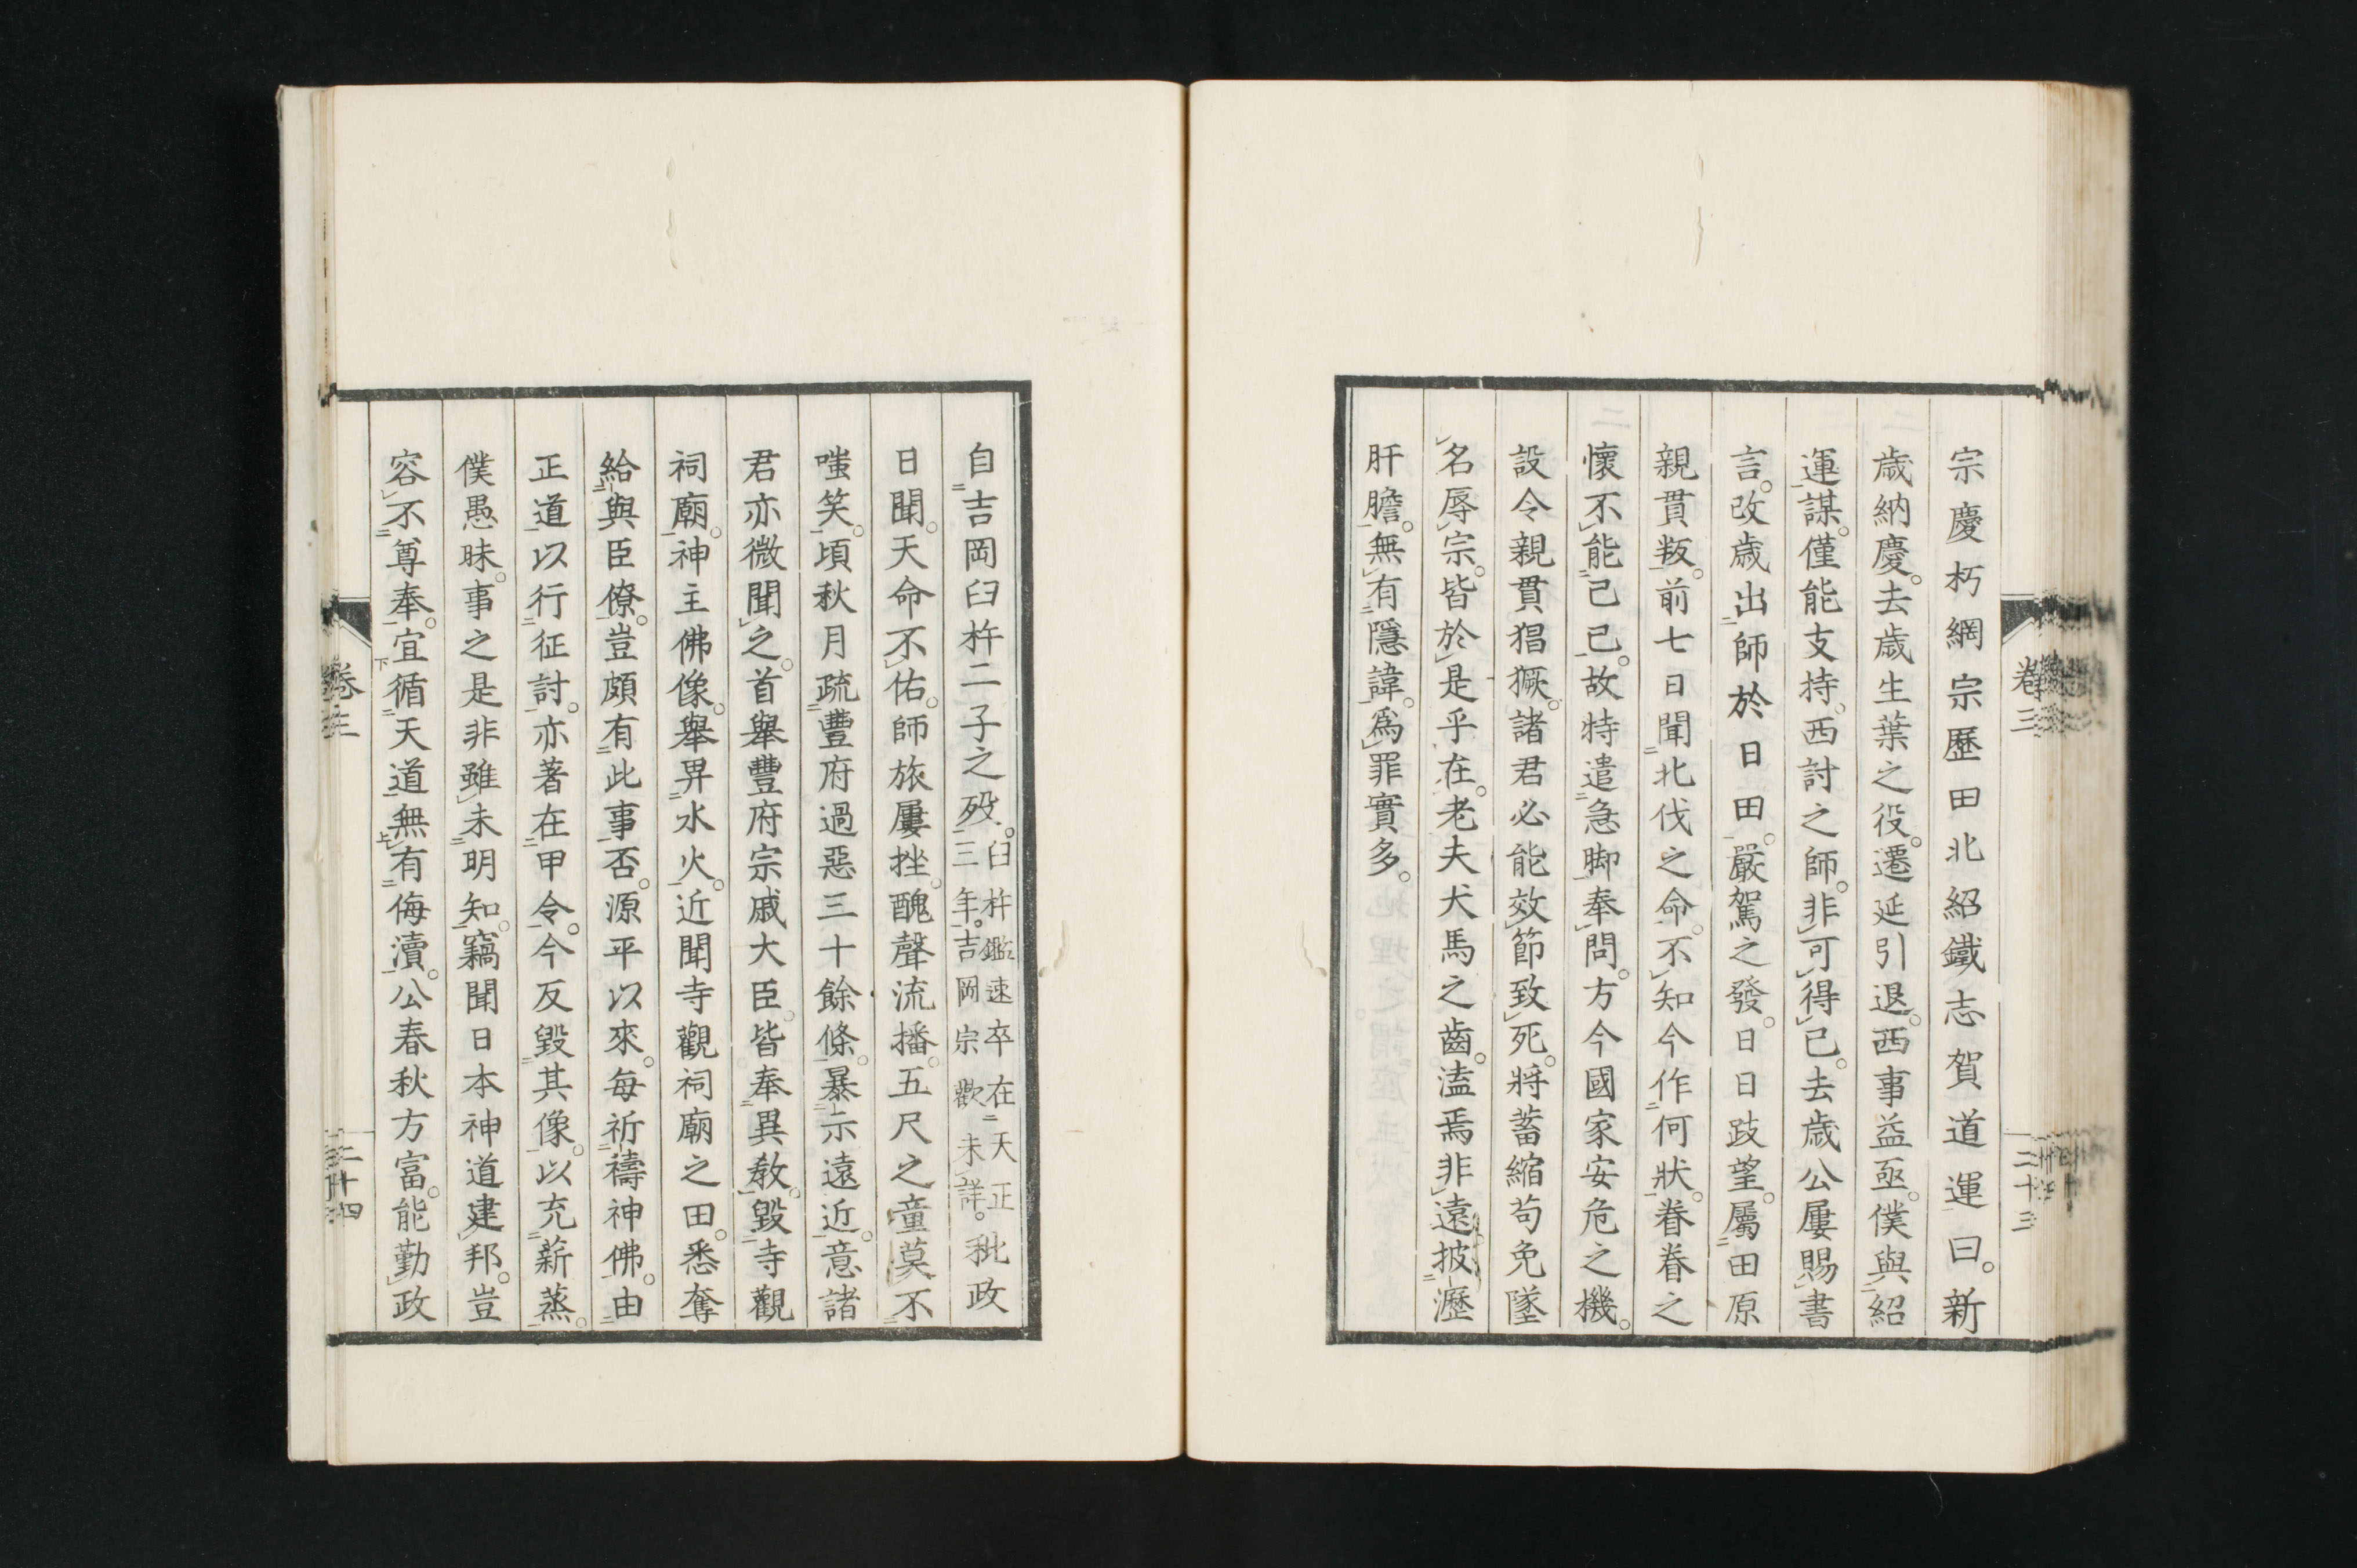 宗慶朽網宗歷田北紹鐵志賀道運曰。新
歲納慶。去歲生葉之役。遷延引退。西事益亟。僕與紹
運謀。僅能支持。西討之師。非可得已。去歲公屢賜書
言。改歲出師於日田。嚴駕之發。日日跂望。屬田原
親貫叛。前七日聞北伐之命。不知今作何狀。眷眷之
懷不能已已。故特遣急脚奉問。方今國家安危之機。
設令親貫猖獗。諸君必能效節致死。將蓄縮苟免墜
名辱宗。皆於是乎在。老夫犬馬之齒。溘焉非遠。披瀝
肝膽。無有隱諱。爲罪實多。
卷三
二十三
自吉岡臼杵二子之歿。臼杵鑑速卒在天正三年。吉岡宗歡未詳。秕政
日聞。天命不佑。師旅屢挫。醜聲流播。五尺之童莫不
嗤笑。頃秋月疏豐府過惡三十餘條。暴示遠近。意諸
君亦微聞之。首舉豐府宗戚大臣。皆奉異教。毀寺觀
祠廟。神主佛像。舉畀水火。近聞寺觀祠廟之田。悉奪
給與臣僚。豈頗有此事否。源平以來。每祈禱神佛。由
正道以行征討。亦著在甲令。今反毀其像。以充薪蒸。
僕愚昧。事之是非雖未明知。竊聞日本神道建邦。豈
容不尊奉。宜循天道無有侮瀆。公春秋方富。能勤政
卷三
二十四